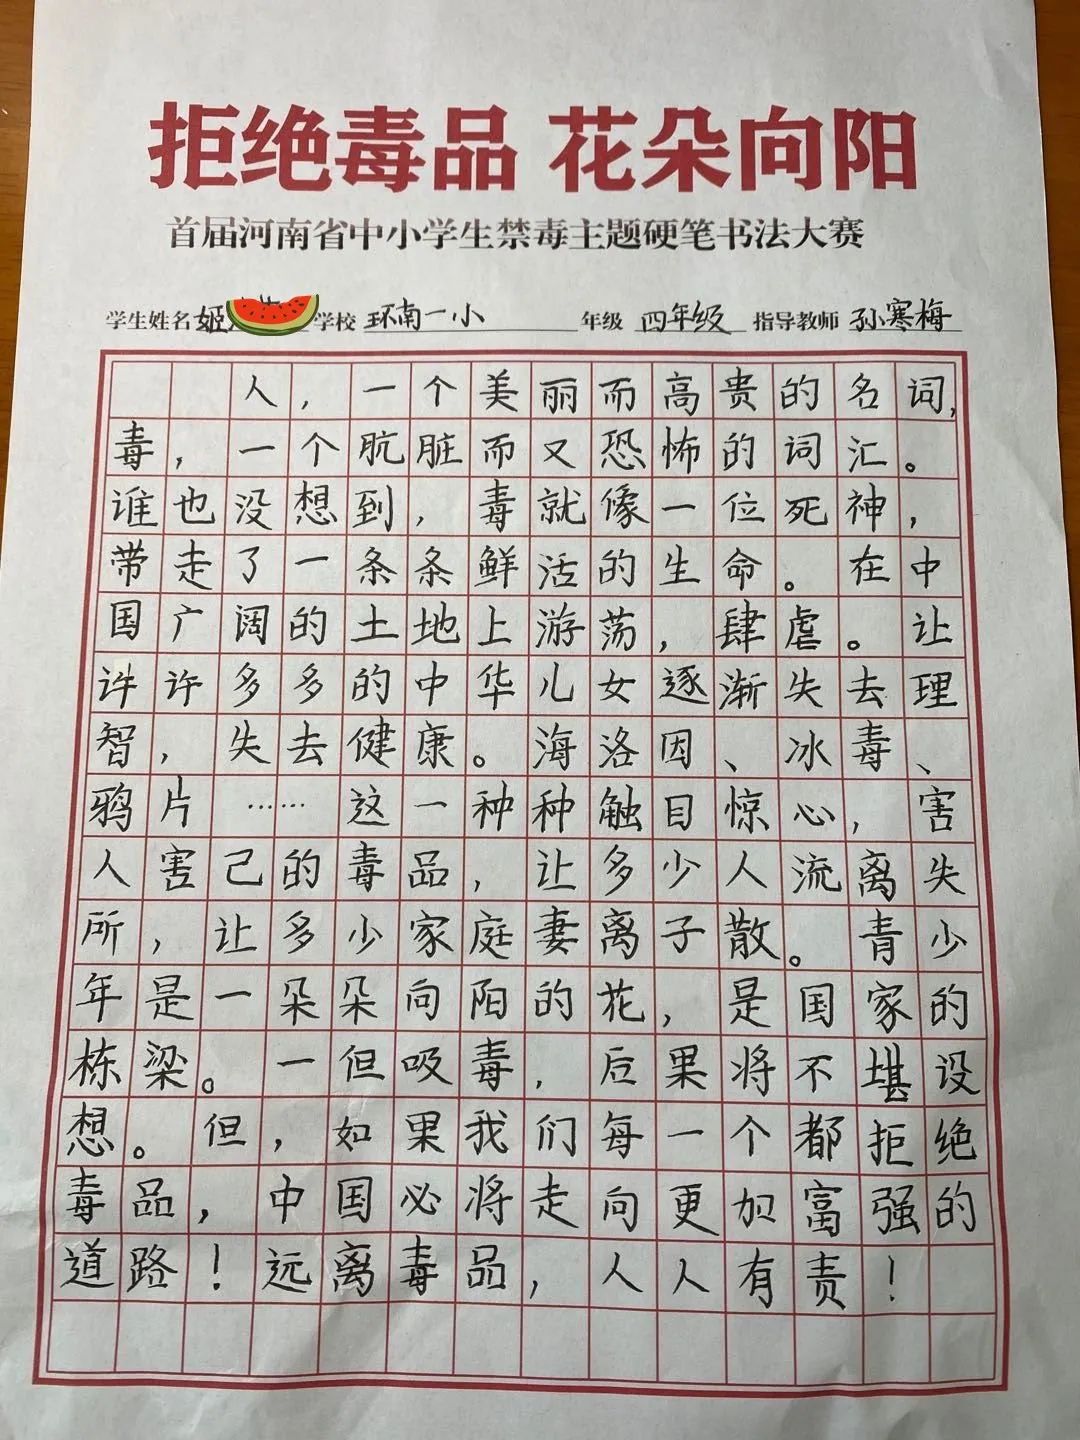 拒绝毒品 花朵向阳
首届河南省中小学生禁毒主题硬笔书法大赛
学生姓名 姬 学校 环南一小 年级 四年级 指导教师 孙寒梅
人,一个美丽而高贵的名词,
毒,一个肮脏而又恐怖的词汇。
谁也没想到,毒就像一位死神,
带走了一条条鲜活的生命。在中
国广阔的土地上游荡,肆虐。让
许许多多的中华儿女逐渐失去理
智,失去健康。海洛因、冰毒、
鸦片……这一种种触目惊心,害
人害己的毒品,让多少人流离失
所,让多少家庭妻离子散。青少
年是一朵朵向阳的花,是国家的
栋梁。一但吸毒,后果将不堪设
想。但,如果我们每一个都拒绝
毒品,中国必将走向更加富强的
道路!远离毒品,人人有责!